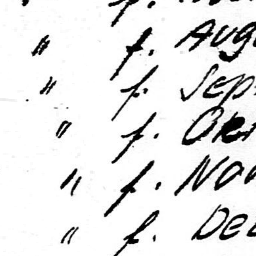 " f. Aug
" f. Sep
" f. Ok
" f. Nov
" f. De